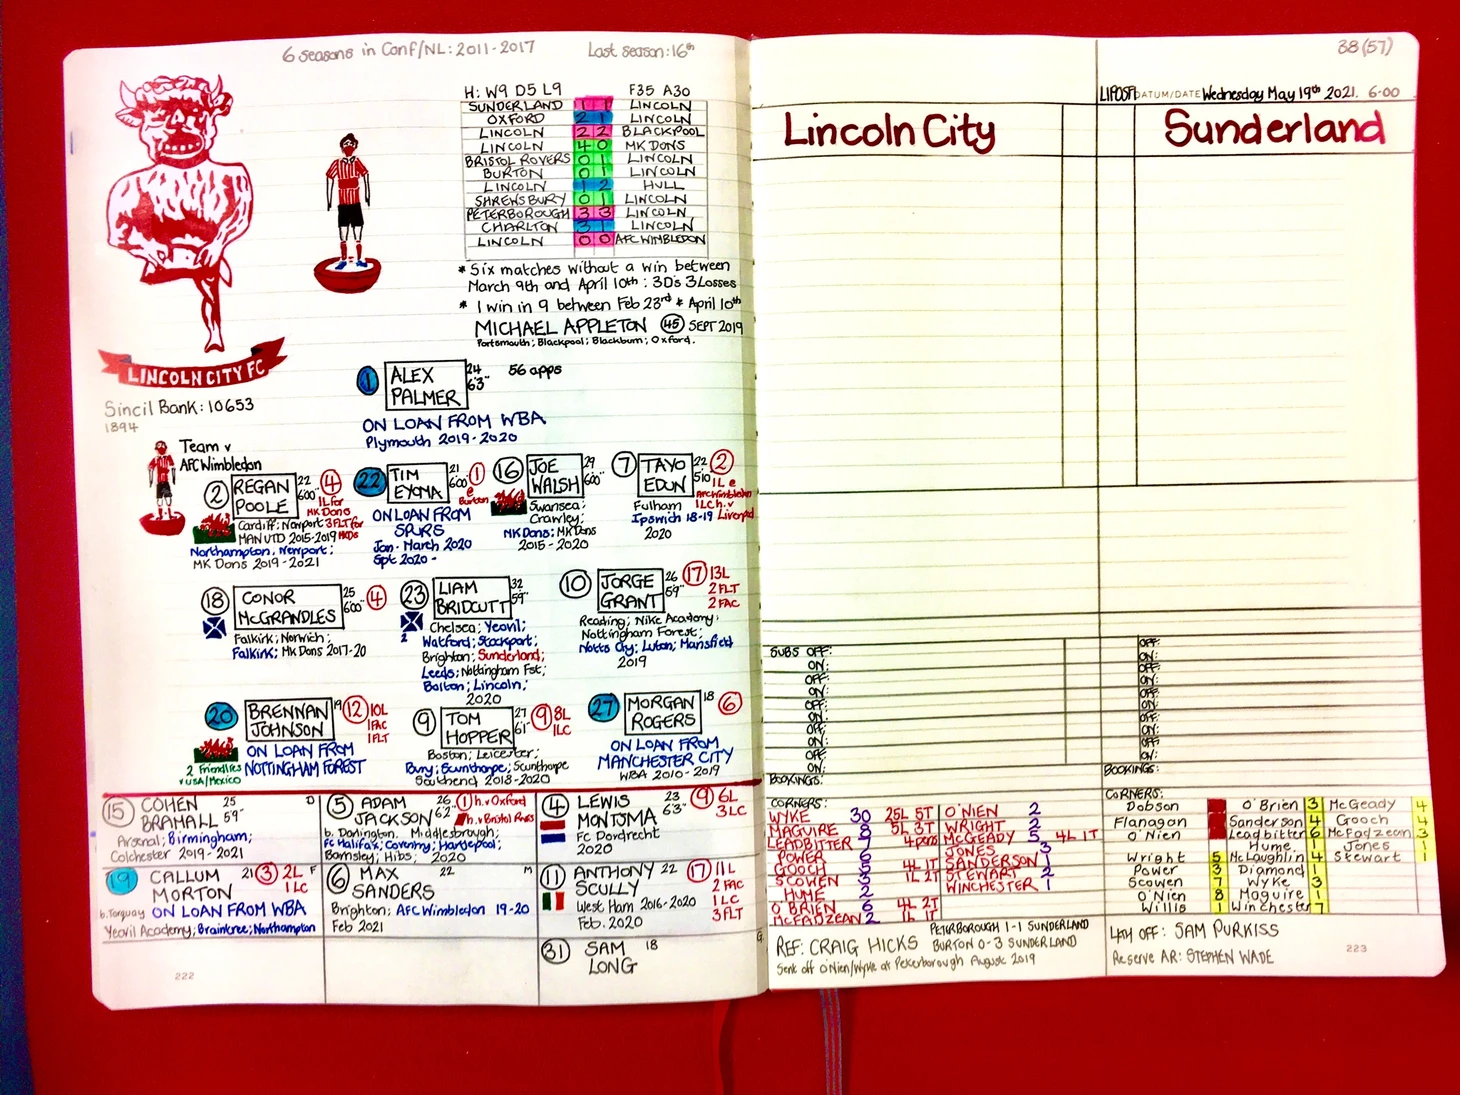 6 seasons in Conf/NL: 2011-2017
Last season: 16th
H: W9 D5 L9 F35 A30
SUNDERLAND 1 1 LINCOLN
OXFORD 2 1 LINCOLN
LINCOLN 2 2 BLACKPOOL
LINCOLN 4 0 MK DONS
BRISTOL ROVERS 0 1 LINCOLN
BURTON 0 1 LINCOLN
LINCOLN 1 2 HULL
SHREWSBURY 0 1 LINCOLN
PETERBOROUGH 3 3 LINCOLN
CHARLTON 3 1 LINCOLN
LINCOLN 0 0 AFC WIMBLEDON
* Six matches without a win between
March 9th and April 10th: 3D's 3 Losses
* 1 win in 9 between Feb 23rd & April 10th
MICHAEL APPLETON 45 SEPT 2019
Portsmouth; Blackpool; Blackburn; Oxford.
LINCOLN CITY FC
Sincil Bank: 10653
1894
Team v
AFC Wimbledon
1 ALEX PALMER 24 6'3" 56 apps
ON LOAN FROM WBA
Plymouth 2019-2020
2 REGAN POOLE 22 6'00" 4
1L for
MK Dons
3FLT for
MK Dons
Cardiff; Newport
MAN UTD 2015-2019
Northampton; Newport;
MK Dons 2019-2021
22 TIM EYOMA 21 6'00" 1
@
Burton
ON LOAN FROM
SPURS
Jan-March 2020
Spt 2020-
16 JOE WALSH 29 6'00"
Swansea;
Crawley;
MK Dons; MK Dons
2015-2020
7 TAYO EDUN 22 5'10 2
1L @
AFC Wimbledon
1LC h.v
Liverpool
Fulham
Ipswich 18-19
2020
18 CONOR McGRANDLES 25 6'00" 4
Falkirk; Norwich;
Falkirk; MK Dons 2017-20
23 LIAM BRIDCUTT 32 5'9"
2
Chelsea; Yeovil;
Watford; Stockport;
Brighton; Sunderland;
Leeds; Nottingham Fst;
Bolton; Lincoln;
2020
10 JORGE GRANT 26 5'9" 17
13L
2FLT
2FAC
Reading; Nike Academy;
Nottingham Forest;
Notts Cty; Luton; Mansfield
2019
20 BRENNAN JOHNSON 19 12
10L
1FAC
1FLT
ON LOAN FROM
NOTTINGHAM FOREST
2 Friendlies
v USA/Mexico
9 TOM HOPPER 27 6'1" 9
8L
1LC
Boston; Leicester;
Bury; Scunthorpe; Scunthorpe
Southend 2018-2020
27 MORGAN ROGERS 18 6
ON LOAN FROM
MANCHESTER CITY
WBA 2010-2019
15 COHEN BRAMALL 25 5'9" D
Arsenal; Birmingham;
Colchester 2019-2021
5 ADAM JACKSON 26 6'2" 1 h.v Oxford
h.v Bristol Rvs
b. Darlington. Middlesbrough;
FC Halifax; Coventry; Hartlepool;
Barnsley; Hibs; 2020
4 LEWIS MONTSMA 23 6'3" 9
6L
3LC
FC Dordrecht
2020
19 CALLUM MORTON 21 3 2L F
1LC
b. Torquay ON LOAN FROM WBA
Yeovil Academy; Braintree; Northampton
6 MAX SANDERS 22 M
Brighton; AFC Wimbledon 19-20
Feb 2021
11 ANTHONY SCULLY 22 17
11L
2 FAC
1 LC
3 FLT
West Ham 2016-2020
Feb. 2020
31 SAM LONG 18
222
38 (57)
DATUM/DATE Wednesday May 19th 2021. 6-00
Lincoln City
Sunderland
SUBS OFF:
ON:
OFF:
ON:
OFF:
ON:
OFF:
ON:
OFF:
ON:
BOOKINGS:
OFF:
ON:
OFF:
ON:
OFF:
ON:
OFF:
ON:
OFF:
ON:
BOOKINGS:
CORNERS:
WYKE 30 25L 5T
MAGUIRE 8 5L 3T
LEADBITTER 7 4pens
POWER 6
GOOCH 5 4L 1T
SCOWEN 3 1L 2T
HUME 2
O'BRIEN 6 4L 2T
McFADZEAN 2 1L 1T
O'NIEN 2
WRIGHT 2
McGEADY 5 4L 1T
JONES 3
SANDERSON 1
STEWART 2
WINCHESTER 1
CORNERS:
Dobson
Flanagan
O'Nien
Wright 5
Power 3
Scowen 7
O'Nien 8
Willis 1
O'Brien 3
Sanderson 4
Leadbitter 6
Hume 1
McLaughlin 4
Diamond 1
Wyke 3
Maguire 1
Winchester 7
McGeady 4
Gooch 4
McFadzean 3
Jones 1
Stewart 1
PETERBOROUGH 1-1 SUNDERLAND
REF: CRAIG HICKS BURTON 0-3 SUNDERLAND
Sent off O'Nien/Wyke at Peterborough August 2019
4TH OFF: SAM PURKISS
Reserve AR: STEPHEN WADE
223